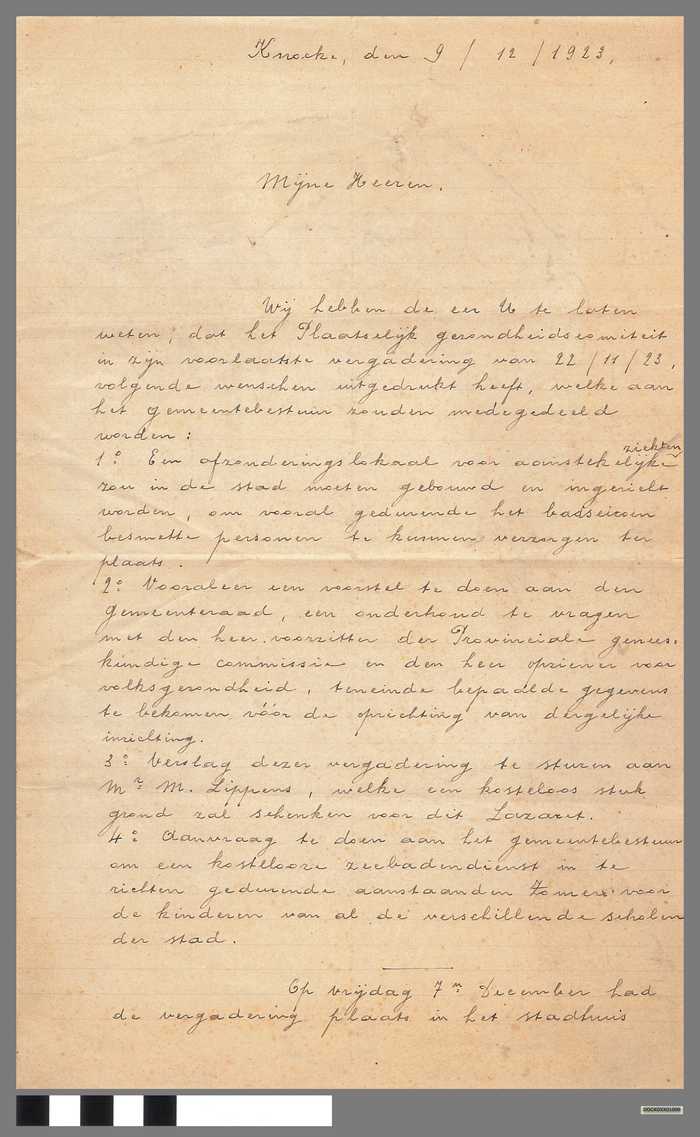 Knocke, den 9 / 12 / 1923,
Mijne Heeren.
Wij hebben de eer U te laten
weten, dat het Plaatselijk gezondheidscomiteit
in zijn voorlaatste vergadering van 22/11/23,
volgende wenschen uitgedrukt heeft, welke aan
het gemeentebestuur zouden medegedeeld
worden :
1° Een afzonderingslokaal voor aanstekelijke ziekten
zou in de stad moeten gebouwd en ingericht
worden, om vooral gedurende het badseizoen
besmette personen te kunnen verzorgen ter
plaats.
2° Vooraleer een voorstel te doen aan den
Gemeenteraad, een onderhoud te vragen
met den heer voorzitter der Provinciale genees-
kundige commissie en den heer opziener voor
volksgezondheid, teneinde bepaalde gegevens
te bekomen vóór de oprichting van dergelijke
inrichting.
3° Verslag dezer vergadering te sturen aan
Mr M. Lippens, welke een kosteloos stuk
grond zal schenken voor dit Lazaret.
4° Aanvraag te doen aan het gemeentebestuur
om een kostelooze zeebadendienst in te
richten gedurende aanstaanden Zomer voor
de kinderen van al de verschillende scholen
der stad.
Op vrijdag 7n December had
de vergadering plaats in het stadhuis